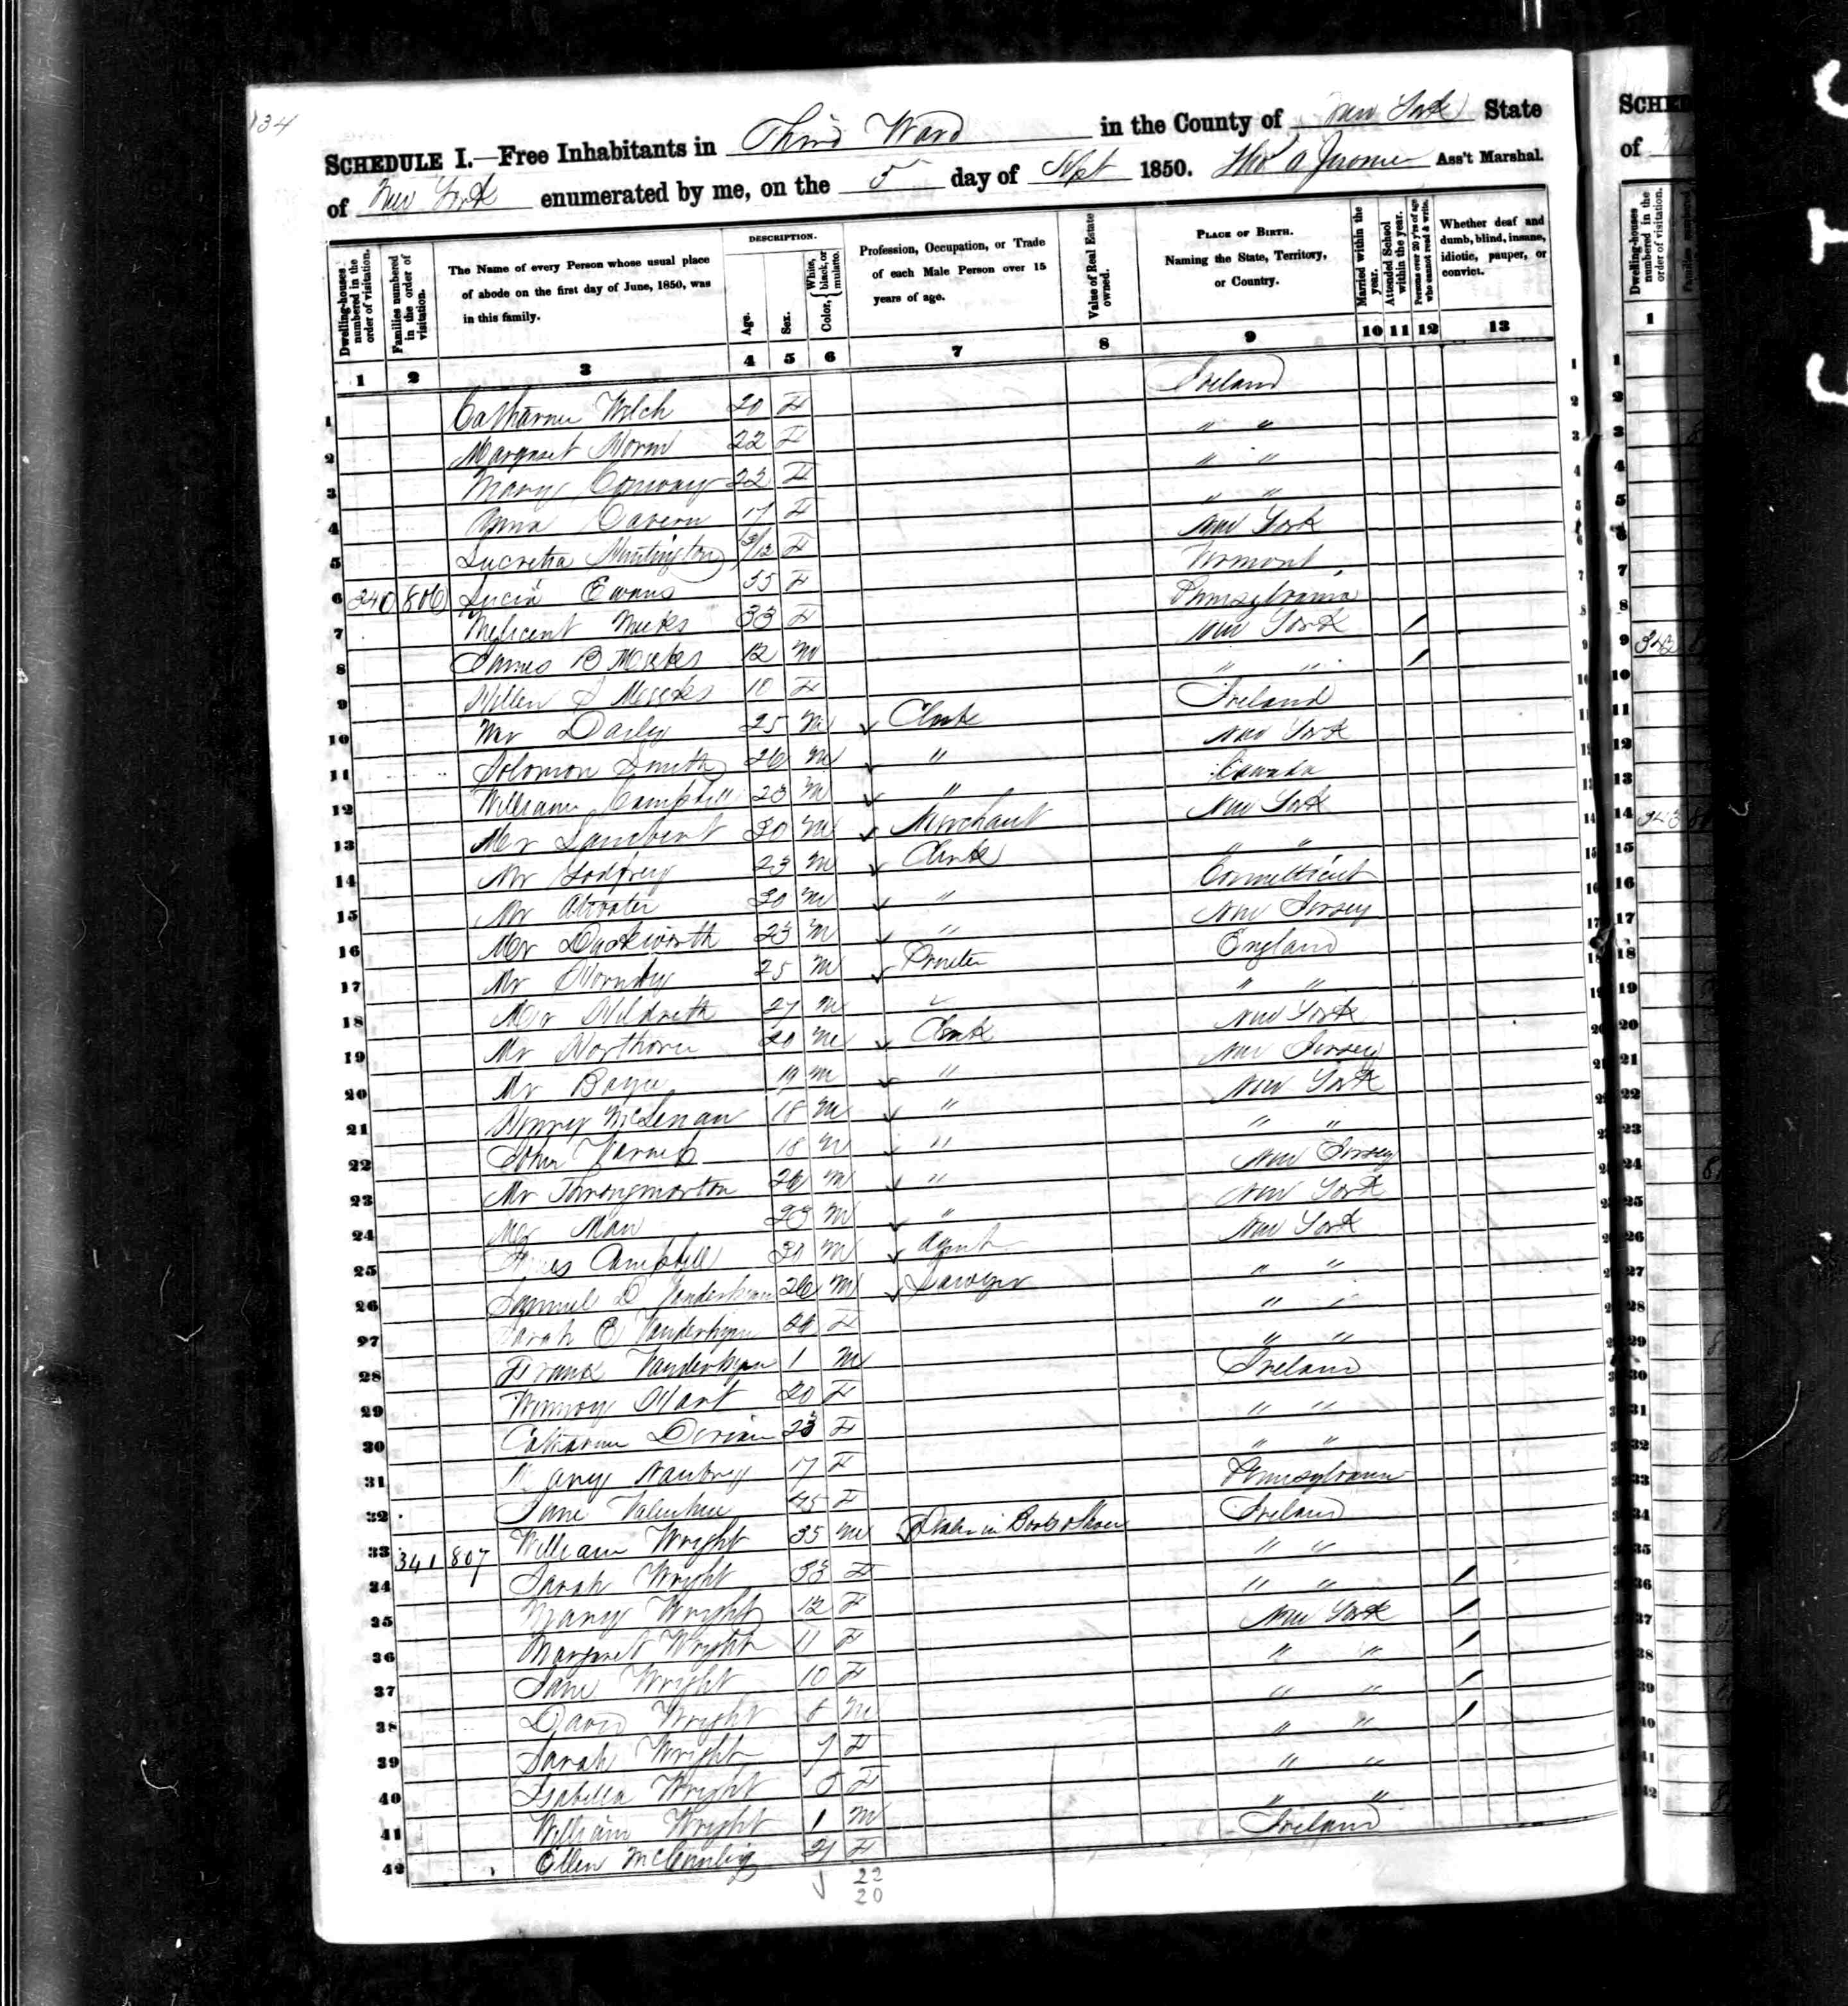 134
SCHEDULE I.—Free Inhabitants in Third Ward in the County of New York State
of New York enumerated by me, on the 5 day of Sept 1850. Ass't Marshal.
Dwelling-houses numbered in the order of visitation.
Families numbered in the order of visitation.
The Name of every Person whose usual place of abode on the first day of June, 1850, was in this family.
DESCRIPTION.
Age.
Sex.
Color, White, black, or mulatto.
Profession, Occupation, or Trade of each Male Person over 15 years of age.
Value of Real Estate owned.
PLACE OF BIRTH. Naming the State, Territory, or Country.
Married within the year.
Attended School within the year.
Persons over 20 y'rs of age who cannot read & write.
Whether deaf and dumb, blind, insane, idiotic, pauper, or convict.
1 2 3 4 5 6 7 8 9 10 11 12 13
1 Catharine Welch 20 F Ireland
2 Margaret 22 F " "
3 Mary Conway 22 F " "
4 Ann Cavern 17 F " "
5 Lucretia Huntington 3/12 F New York
6 340 806 Lucia Evans 55 F Vermont
7 Melicent Meeks 33 F Pennsylvania
8 James B Meeks 12 M New York /
9 Hellen S Meeks 10 F " " /
10 Mr Dailey 25 M Clerk Ireland
11 Solomon Smith 26 M " New York
12 William Campbell 23 M " Canada
13 Mr Lambert 30 M Merchant New York
14 Mr Godfrey 23 M Clerk " "
15 Mr Atwater 30 M " Connecticut
16 Mr Duckworth 23 M " New Jersey
17 Mr Hornby 25 M Printer England
18 Mr Hildreth 27 M " "
19 Mr 20 M Clerk New York
20 Mr 19 M " New Jersey
21 Henry McLenan 18 M " New York
22 John 18 M " " "
23 Mr Throngmorton 26 M " New Jersey
24 Mr Man 23 M " New York
25 Campbell 30 M Agent New York
26 Samuel D 26 M Lawyer " "
27 Sarah E F " "
28 Frank 1 M " "
29 Hart 20 F Ireland
30 Catharine F " "
31 Mary 17 F " "
32 Jane Valentine 45 F Pennsylvania
33 341 807 William Wright 35 M Dealer in Boots & Shoes Ireland
34 Sarah Wright 33 F " "
35 Mary Wright 12 F " " /
36 Margaret Wright 11 F New York /
37 Jane Wright 10 F " " /
38 David Wright 8 M " " /
39 Sarah Wright 7 F " " /
40 Isabella Wright 5 F " "
41 William Wright 1 M " "
42 Ellen 21 F Ireland
22
20